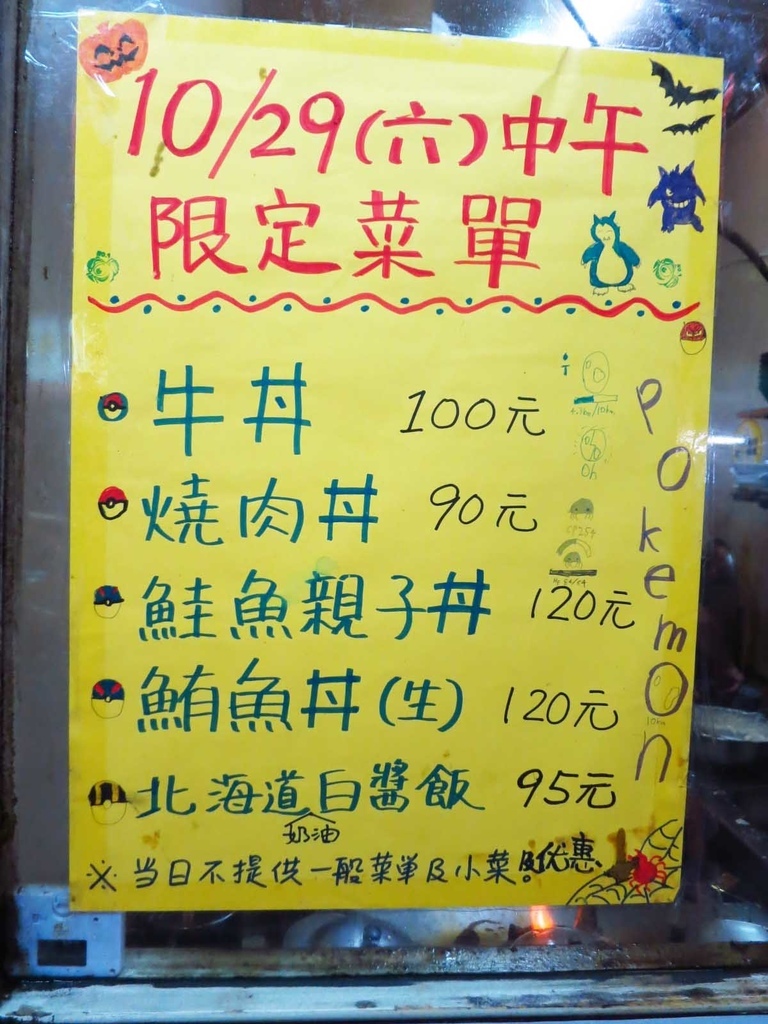 10/29(六)中午
限定菜單
牛丼 100元
燒肉丼 90元
鮭魚親子丼 120元
鮪魚丼(生) 120元
北海道奶油白醬飯 95元
※當日不提供一般菜單及小菜。及优惠
Pokemon
10km